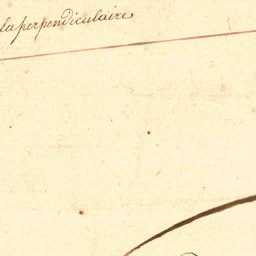 la perpendiculaire